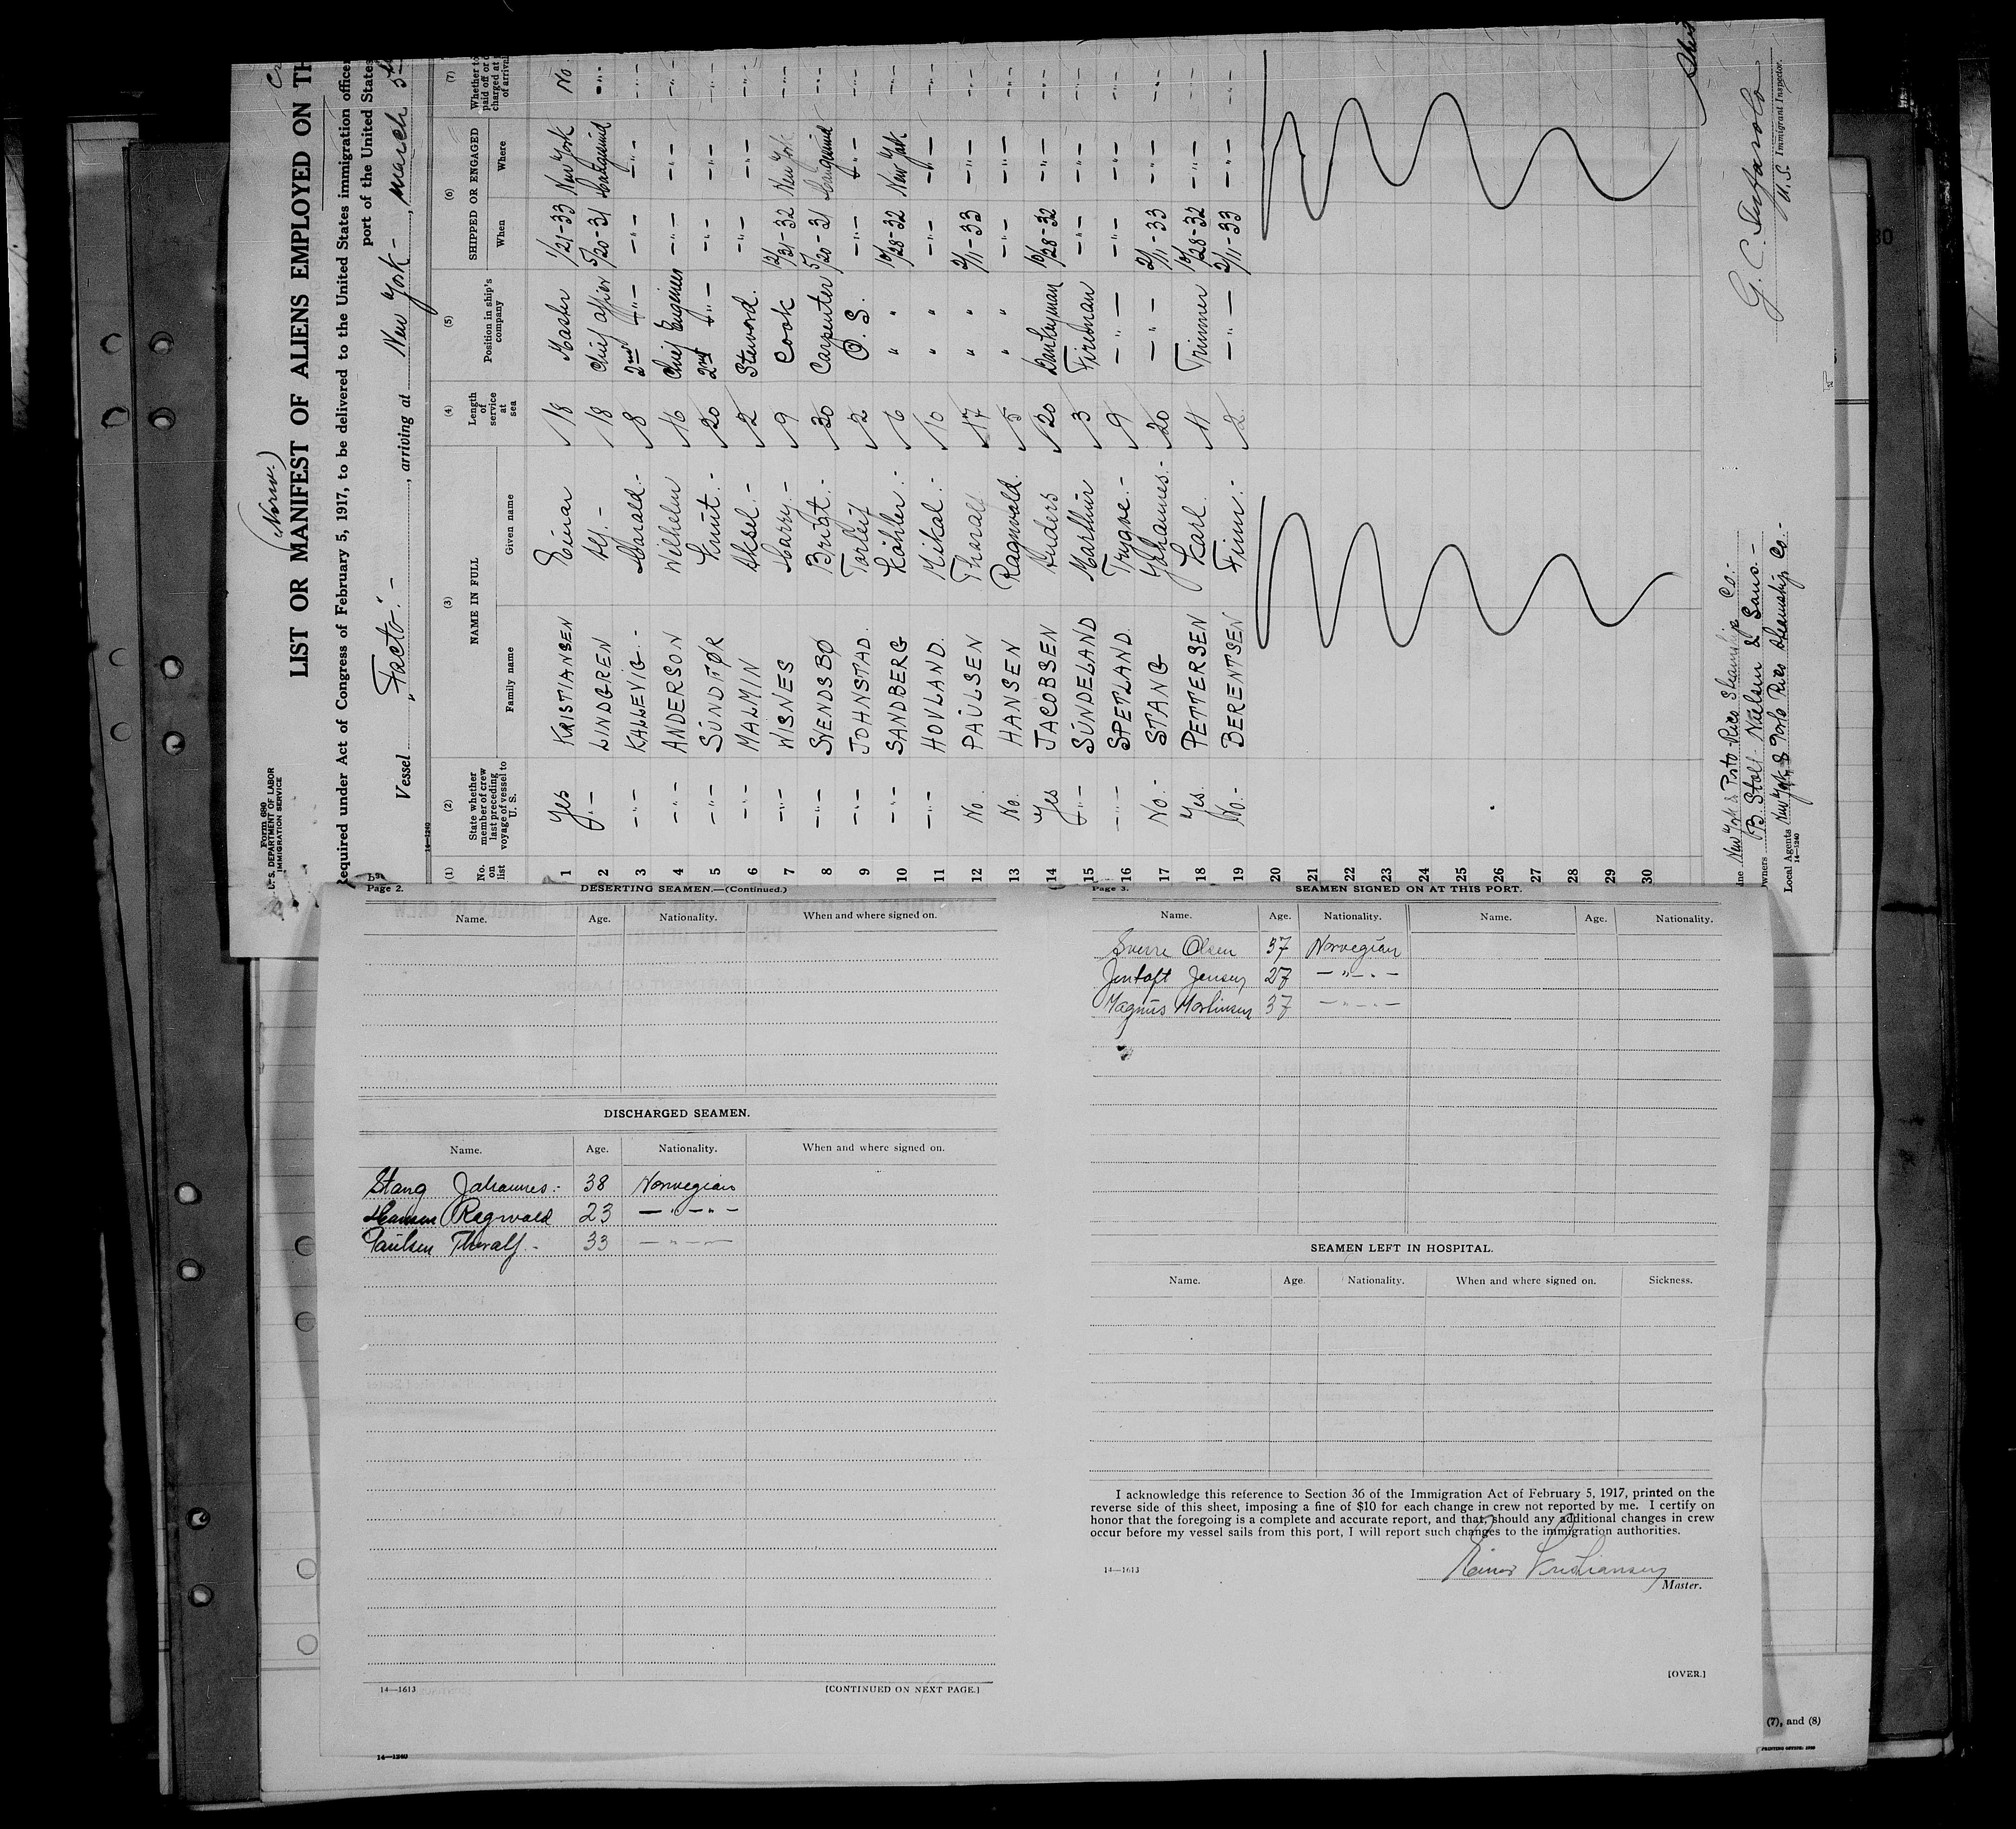 (Norw.)
Form 680
U. S. DEPARTMENT OF LABOR
IMMIGRATION SERVICE
LIST OR MANIFEST OF ALIENS EMPLOYED ON TH
Required under Act of Congress of February 5, 1917, to be delivered to the United States immigration officer
port of the United States
Vessel "Facto".-, arriving at New York -, March 5th
14—1240
(1) (2) (3) (4) (5) (6) (7)
No. on list
State whether member of crew last preceding voyage of vessel to U. S.
NAME IN FULL
Family name Given name
Length of service at sea
Position in ship's company
SHIPPED OR ENGAGED
When Where
Whether to paid off or charged at of arrival
1 Yes KRISTIANSEN Einar 18 Master 1/21-33 New York No
2 LINDGREN Alf.- 18 Chief Officer 5/20-31 Haugesund -"-
3 -"- KALLEVIG.- Harald.- 8 2nd -"- -"- -"- -"-
4 -"- ANDERSON Wilhelm 16 Chief Engineer -"- -"- -"-
5 -"- SUNDFØR Knut.- 20 2nd -"- -"- -"- -"-
6 -"- MALMIN Aksel.- 2 Steward. -"- -"- -"-
7 -"- WISNES Harry.- 9 Cook 12/31-32 New York -"-
8 -"- SVENDSBØ Bright.- 30 Carpenter 5/20-31 Haugesund -"-
9 -"- JOHNSTAD. Torleif 2 O.S. -"- -"- -"-
10 -"- SANDBERG Köhler.- 6 " " 10/28-32 New York -"-
11 -"- HOVLAND. Mikal.- 10 " " -"- -"- -"-
12 No. PAULSEN Thoralf 17 " " 2/11-33 -"- -"-
13 No. HANSEN Ragnvald. 5 " " -"- -"- -"-
14 Yes JACOBSEN Anders 20 Donkeyman 10/28-32 -"- -"-
15 -"- SUNDELAND Marthin 3 Fireman -"- -"- -"-
16 -"- SPETLAND. Trygve.- 9 -"- -"- -"- -"-
17 No.- STANG Johannes.- 20 -"- 2/11-33 -"- -"-
18 Yes. PETTERSEN Karl. 11 Trimmer 10/28-32 -"- -"-
19 No.- BERENTSEN Finn.- 2 -"- 2/11-33 -"- -"-
20
21
22
23
24
25
26
27
28
29
30
New York & Porto Rico Steamship Co.-
B. Stolt Nielsen & Sons.-
Local Agents New York & Porto Rico Steamship Co.-
14—1240
U.S. Immigrant Inspector.
Page 2.
DESERTING SEAMEN.—(Continued.)
Name. Age. Nationality. When and where signed on.
DISCHARGED SEAMEN.
Name. Age. Nationality. When and where signed on.
Stang Johannes.- 38 Norwegian
Hansen Ragnvald 23 -"-"-
Paulsen Thoralf.- 33 -"-
14—1613
[CONTINUED ON NEXT PAGE.]
14—1240
Page 3.
SEAMEN SIGNED ON AT THIS PORT.
Name. Age. Nationality. Name. Age. Nationality.
Sverre Olsen 37 Norwegian
Jentoft Jensen 27 -"-"-
Magnus Martinsen 37 -"-"-
SEAMEN LEFT IN HOSPITAL.
Name. Age. Nationality. When and where signed on. Sickness.
I acknowledge this reference to Section 36 of the Immigration Act of February 5, 1917, printed on the
reverse side of this sheet, imposing a fine of $10 for each change in crew not reported by me. I certify on
honor that the foregoing is a complete and accurate report, and that, should any additional changes in crew
occur before my vessel sails from this port, I will report such changes to the immigration authorities.
14—1613
Einar Kristiansen
Master.
[OVER.]
(7), and (8)